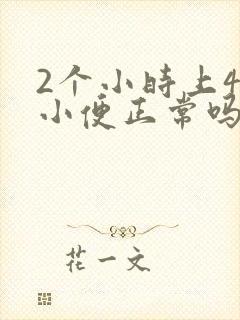 2个小时上4
小便正常吗
花一文